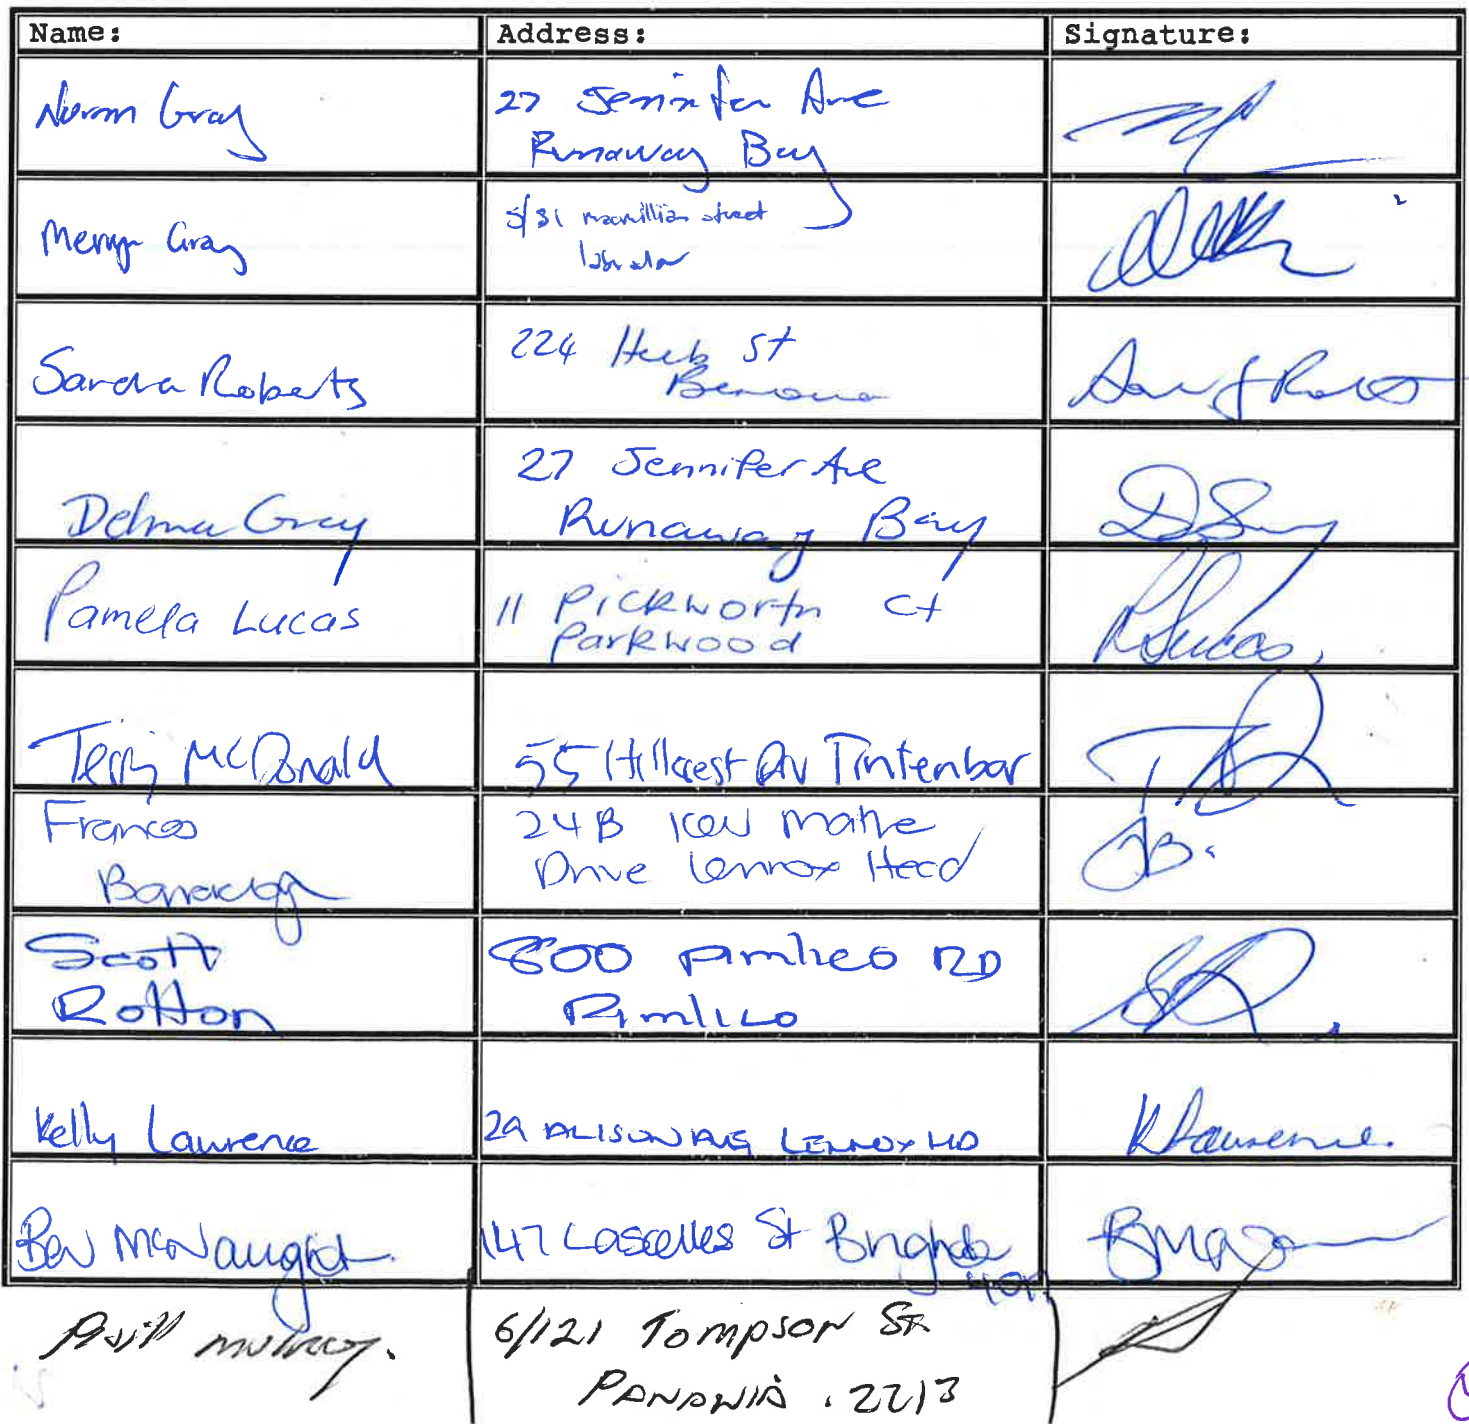 Name: Address: Signature:
Norm Gray
27 Jennifer Ave
Runaway Bay
Gray
5/31 macmillian street
labrador
Sandra Roberts
224 St
Benowa
Delma Gray
27 Jennifer Ave
Runaway Bay
Pamela Lucas
11 Pickworth Ct
Parkwood
PLucas
Terry McDonald
55 Hillcrest Av Tintenbar
Frances
24B
Drive Lennox Head
JB.
Scott
Rotton
800 Pimlico RD
Pimlico
Kelly Lawrence
29 ALISON AVE LENNOX HD
KLawrence.
Bev McNaught
147 Lascelles St
6/121 TOMPSON ST
PANANIA . 2213